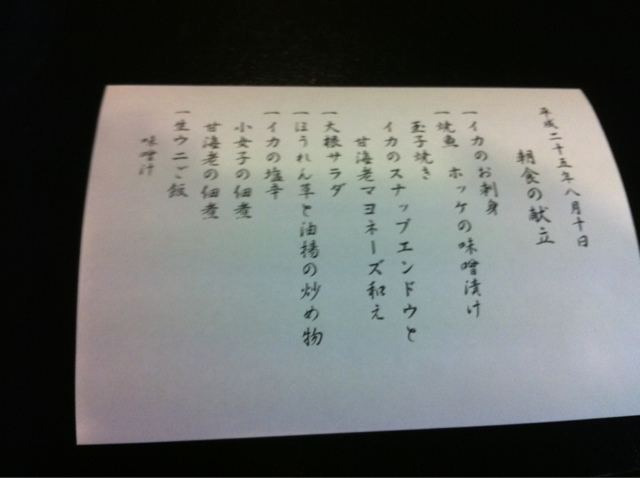 平成二十五年八月十日
朝食の献立
一イカのお刺身
一焼魚 ホッケの味噌漬け
玉子焼き
イカのスナップエンドウと
甘海老マヨネーズ和え
一大根サラダ
一ほうれん草と油揚の炒め物
一イカの塩辛
小女子の佃煮
甘海老の佃煮
一生ウニご飯
味噌汁